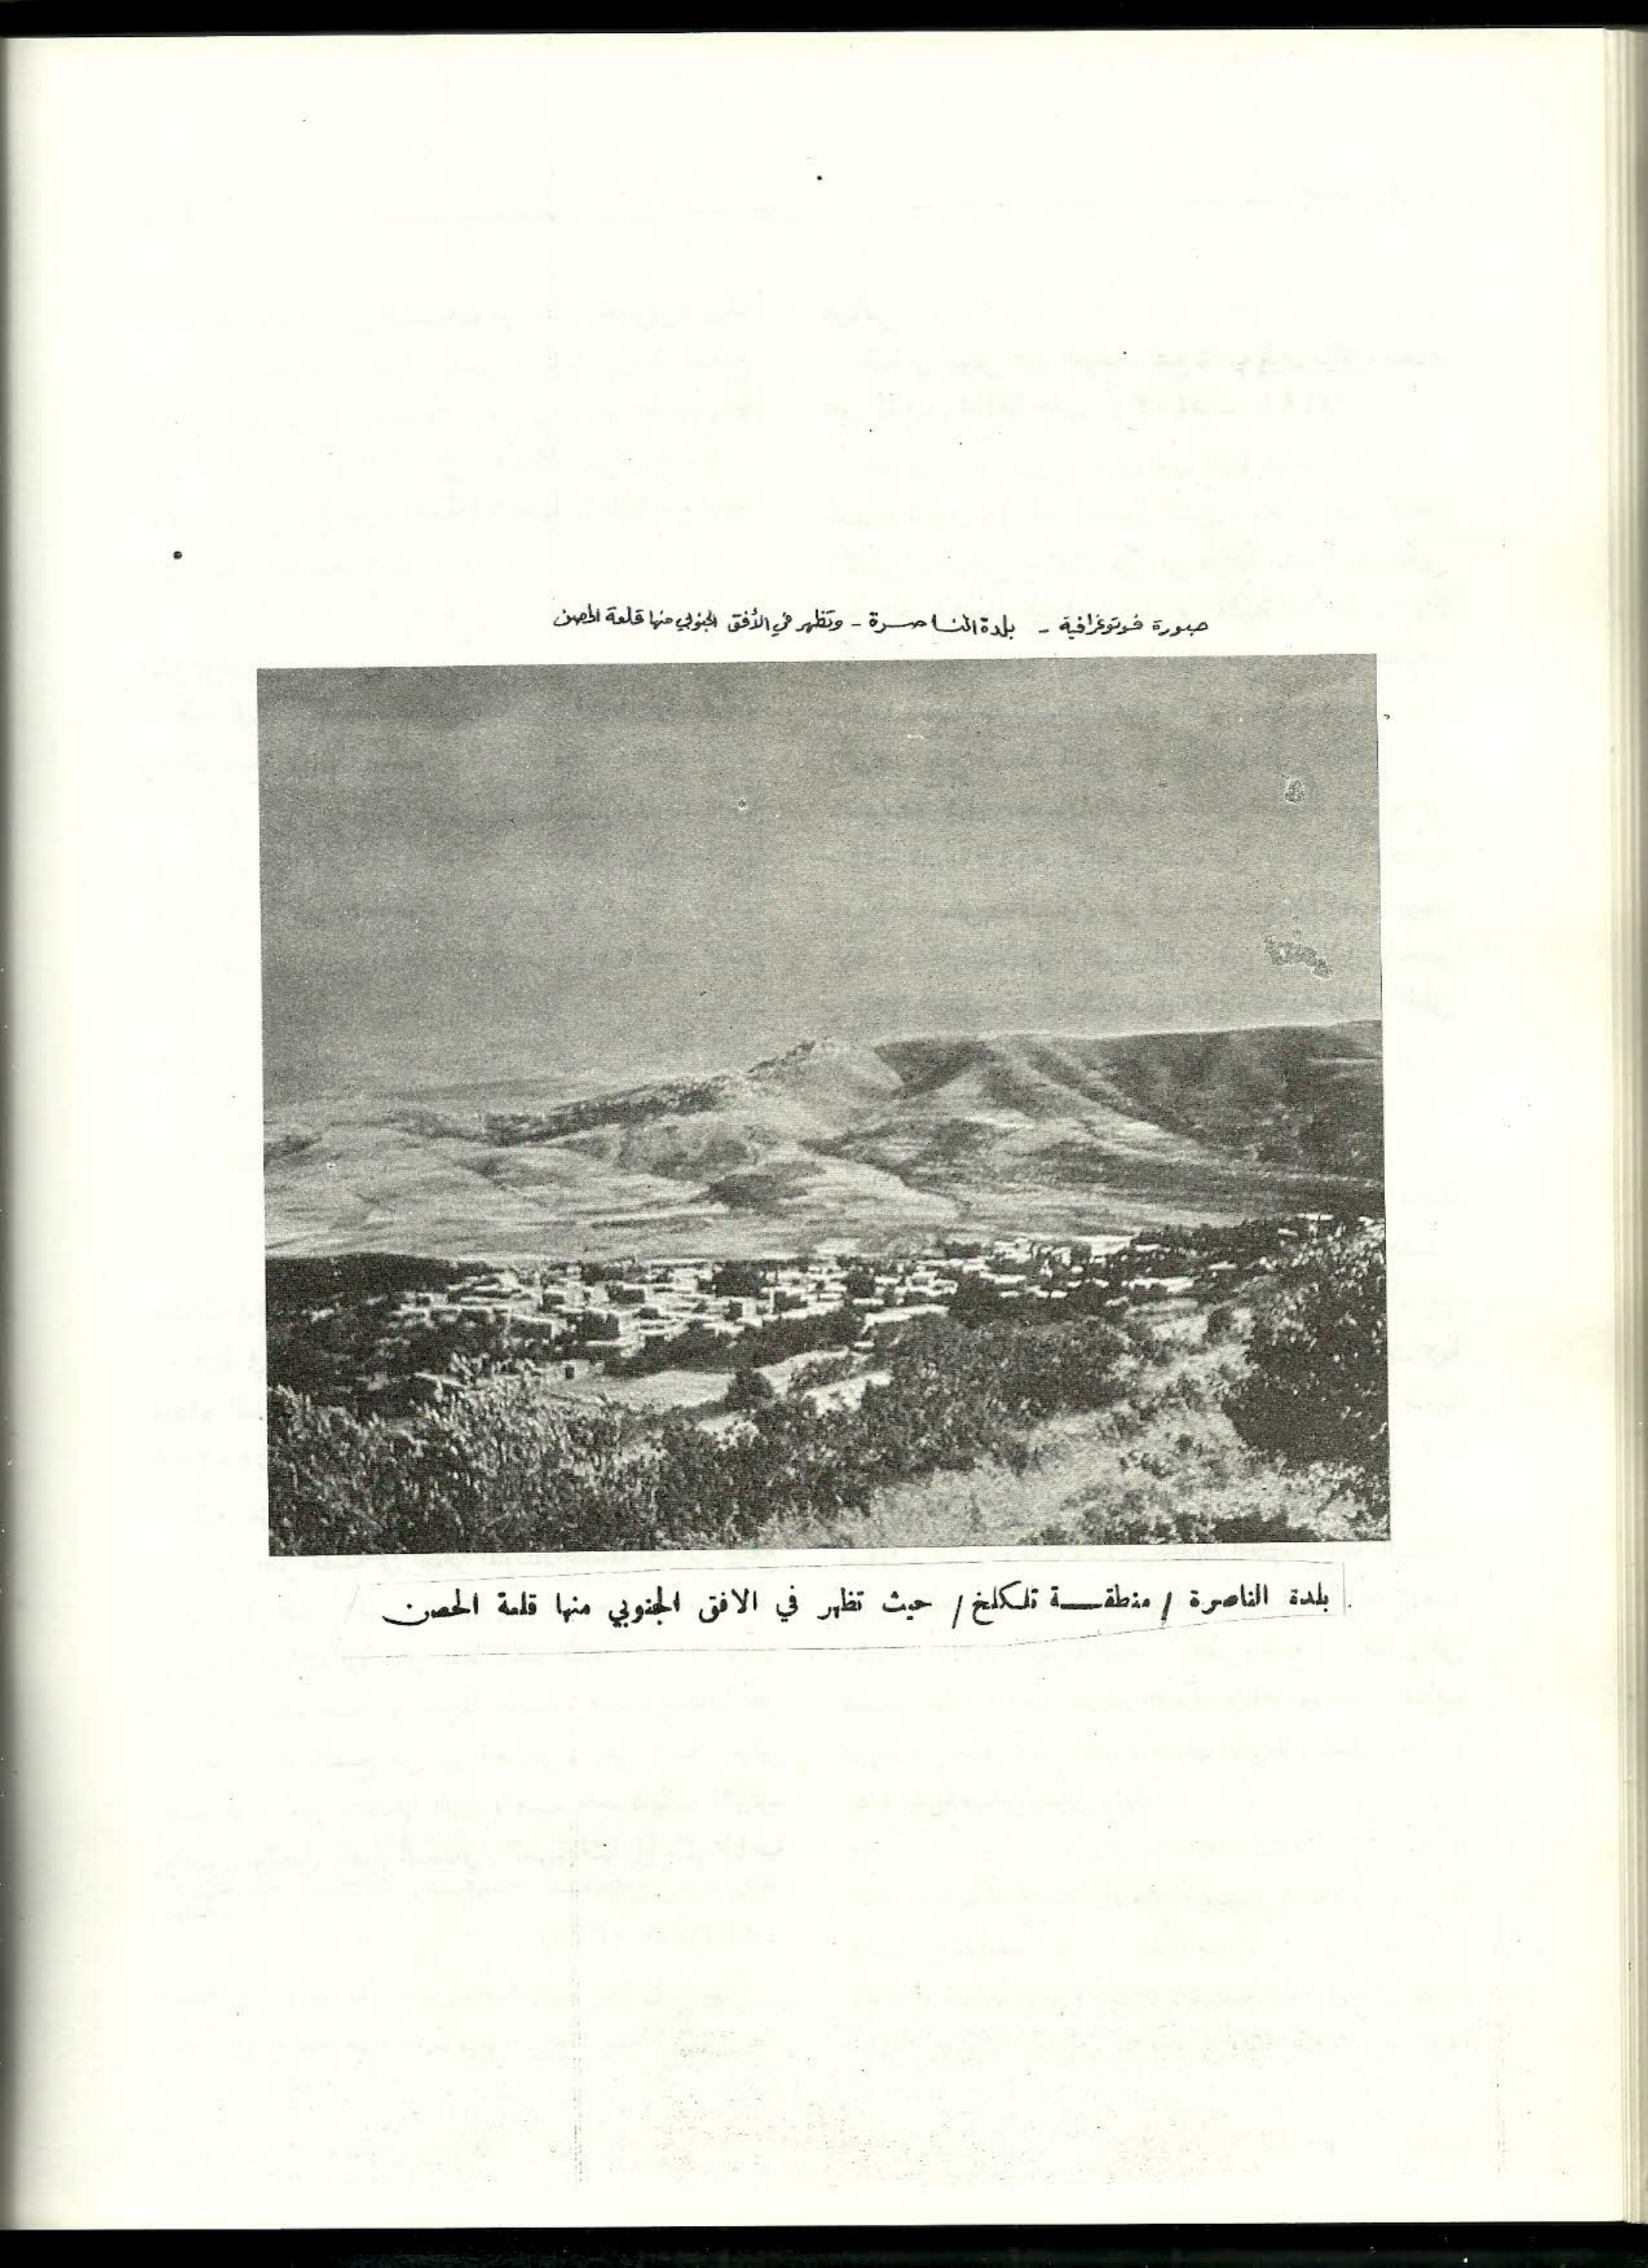 صورة فوتوغرافية - بلدة الناصرة - وتظهر في الأفق الجنوبي منها قلعة الحصن
بلدة الناصرة / منطقة تلكلخ / حيث تظهر في الافق الجنوبي منها قلعة الحصن